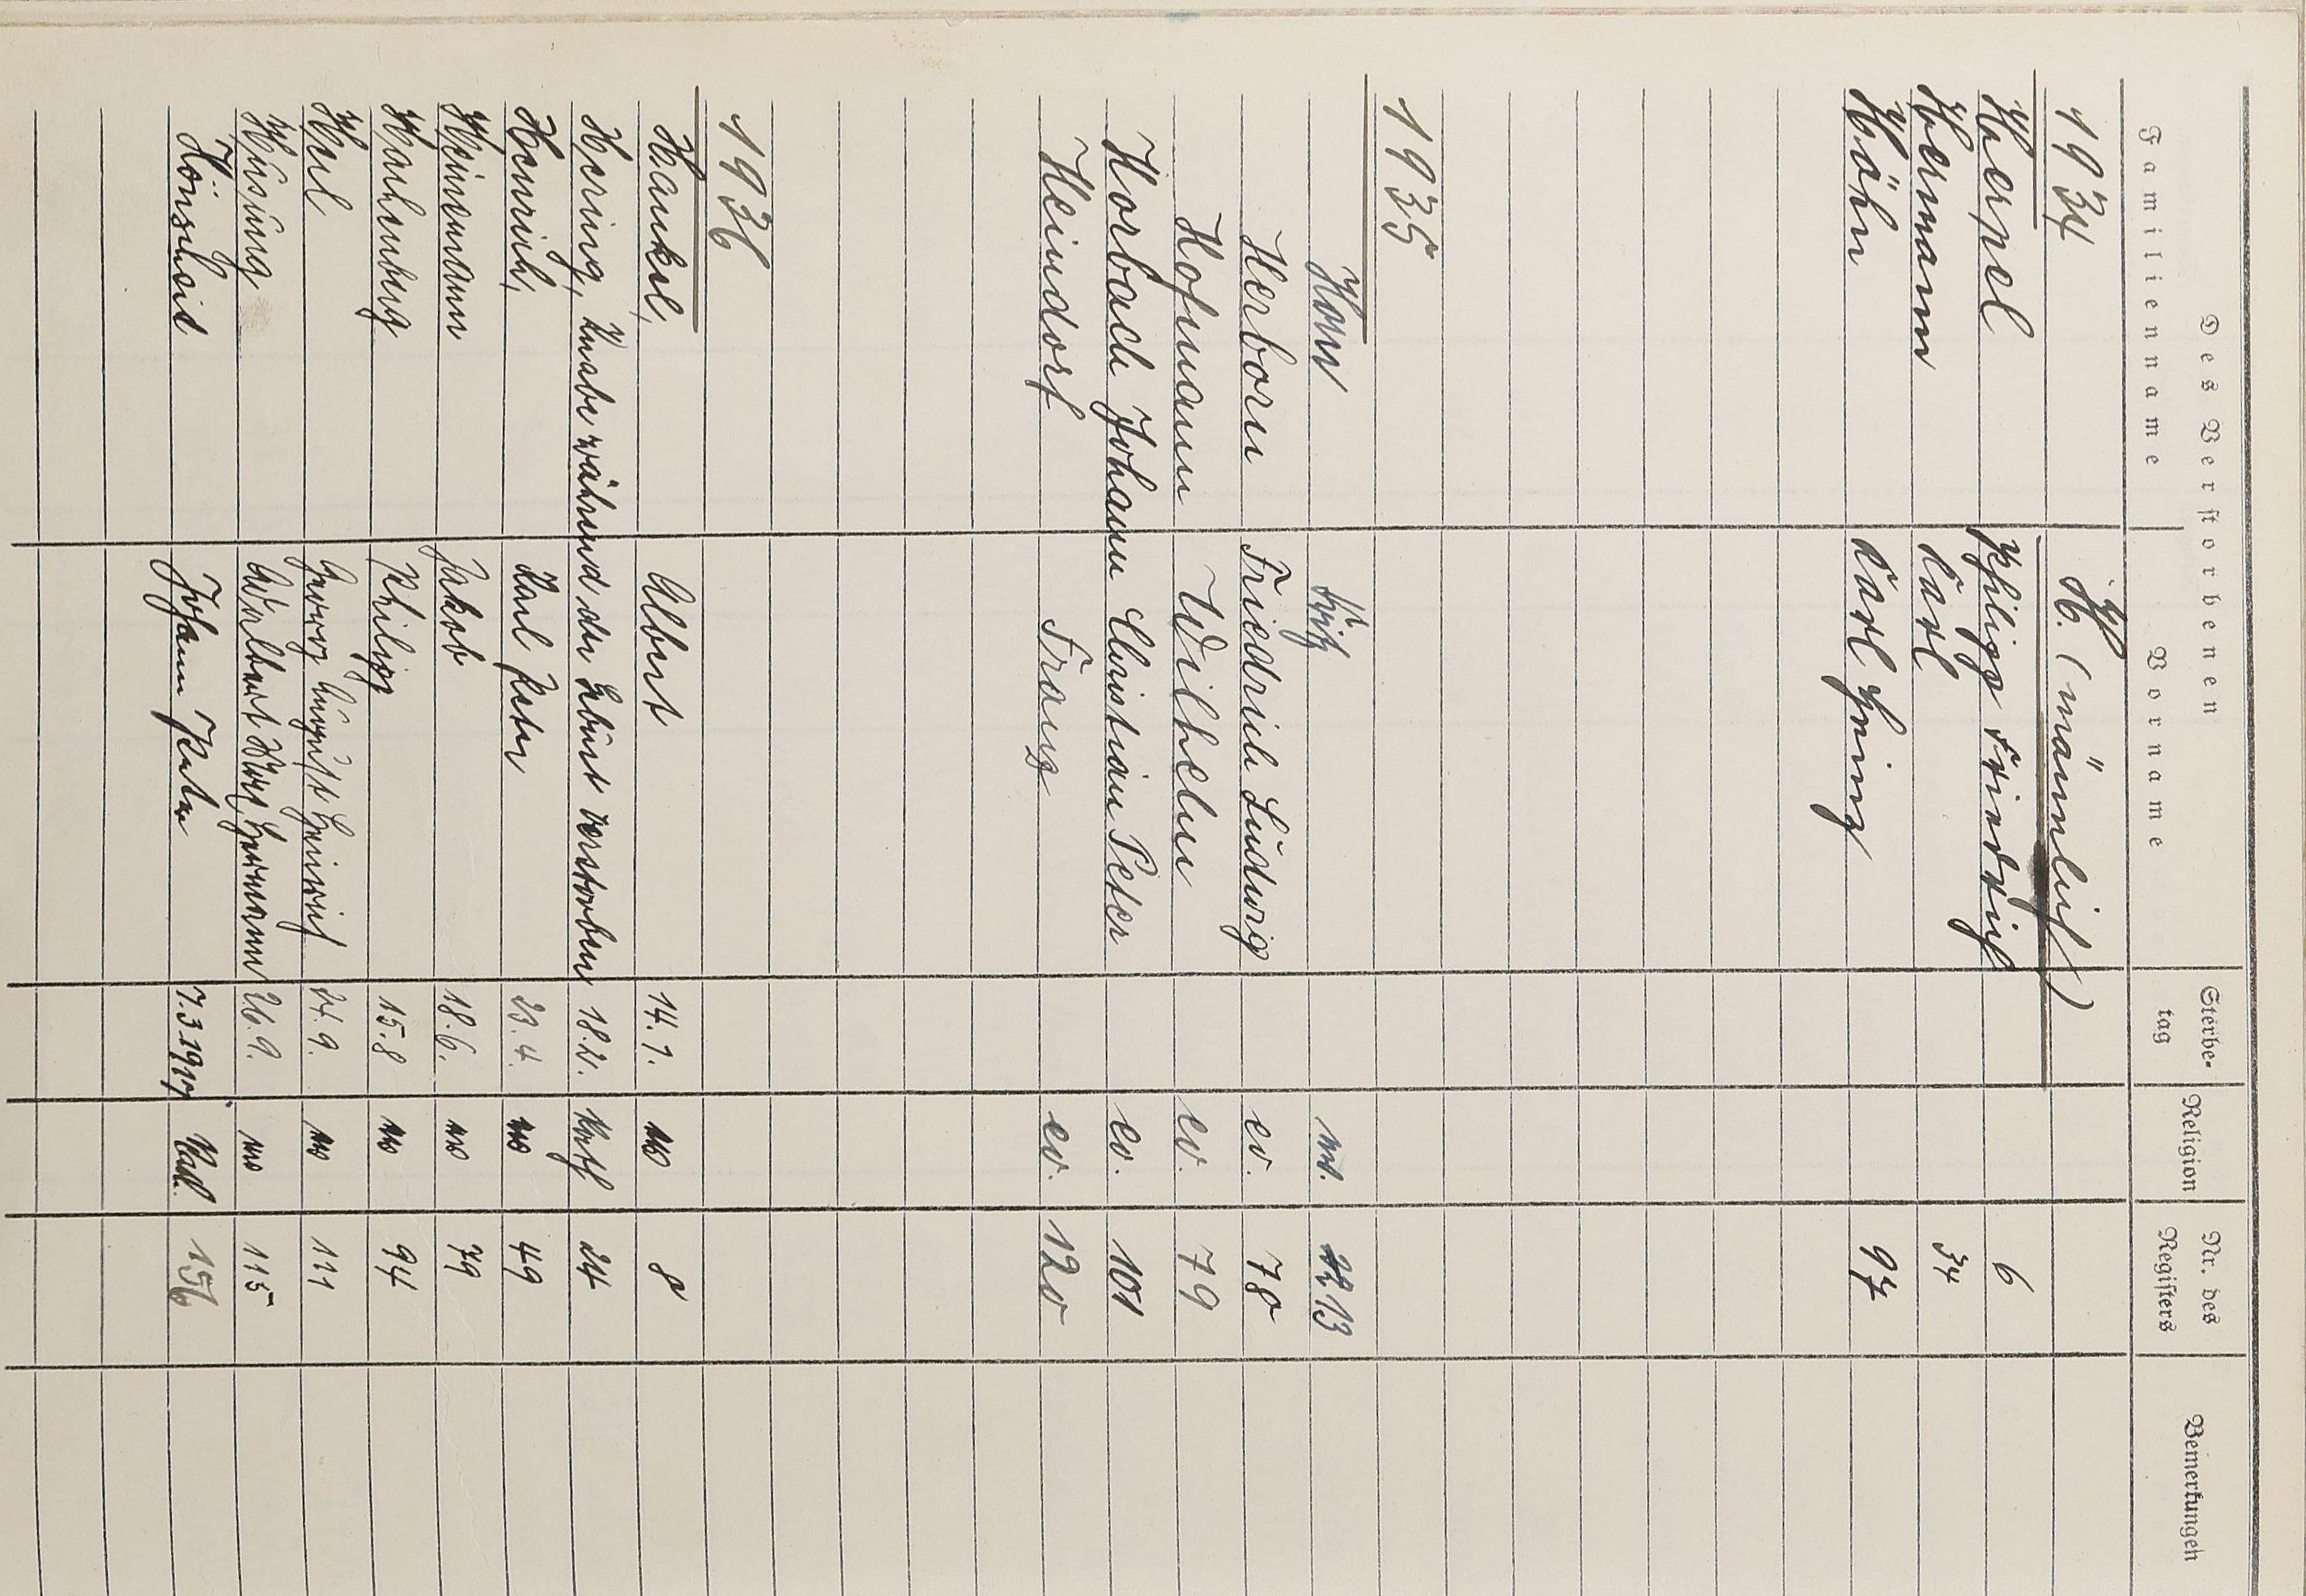 Des Verstorbenen Sterbe- Religion Nr. des Bemerkungen
Familienname Vorname tag Registers
1934 H. (männlich)
Haepel Philipp Friedrich 6
Hermann Carl 34
Höhn Carl Heinz 97
1935
Horn Fritz ev. 13
Herborn Friedrich Ludwig ev. 78
Hofmann Wilhelm ev. 79
Horbach Johann Christian Peter ev. 101
Heindorf Franz ev. 120
1936
Hankel, Albert 14.1. ev 8
Hering, Knabe während der Geburt verstorben 18.2. Kath 24
Henrich, Karl Peter 23.4. ev 49
Heinemann Jakob 18.6. ev 79
Hachenberg Philipp 15.8 ev 94
Heil Georg August Heinrich 24.9. ev 111
Hüsung Adalbert Hermann 26.9. ev 115
Hönscheid Johann Peter 7.3.1917 Kath. 156